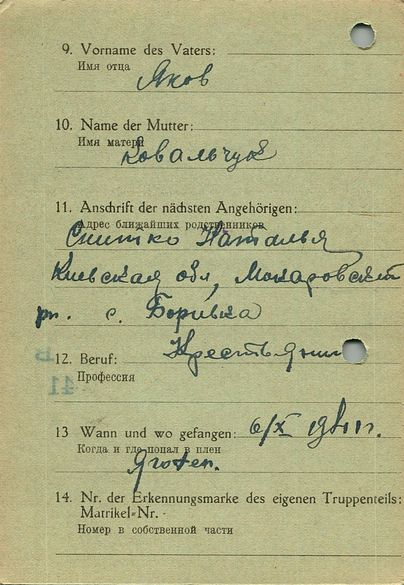 9. Vorname des Vaters:
Имя отца
Яков
10. Name der Mutter:
Имя матери
Ковальчук
11. Anschrift der nächsten Angehörigen:
Адрес ближайших родственников
Снитко Наталья
Киевская обл, Макаровский
рн. с. Борівка
12. Beruf:
Крестьянин
Профессия
41
13 Wann und wo gefangen: 6/X 1941 г.
Когда и где попал в плен
14. Nr. der Erkennungsmarke des eigenen Truppenteils:
Matrikel-Nr.
Номер в собственной части